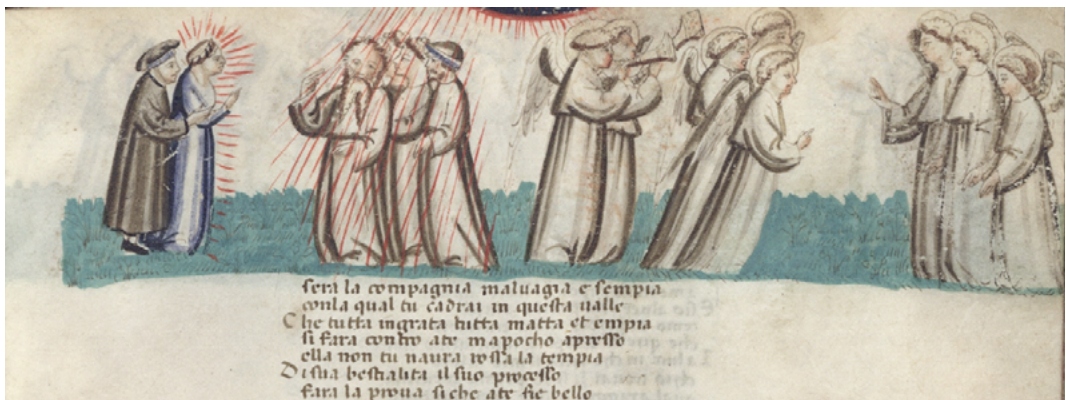 sera la compagnia malvagia e sempia
conla qual tu cadrai in questa valle
Che tutta ingrata tutta matta et empia
si fara contro ate mapocho apresso
ella non tu naura rossa la tempia
Disua bestialita il suo processo
fara la prova siche ate fie bello